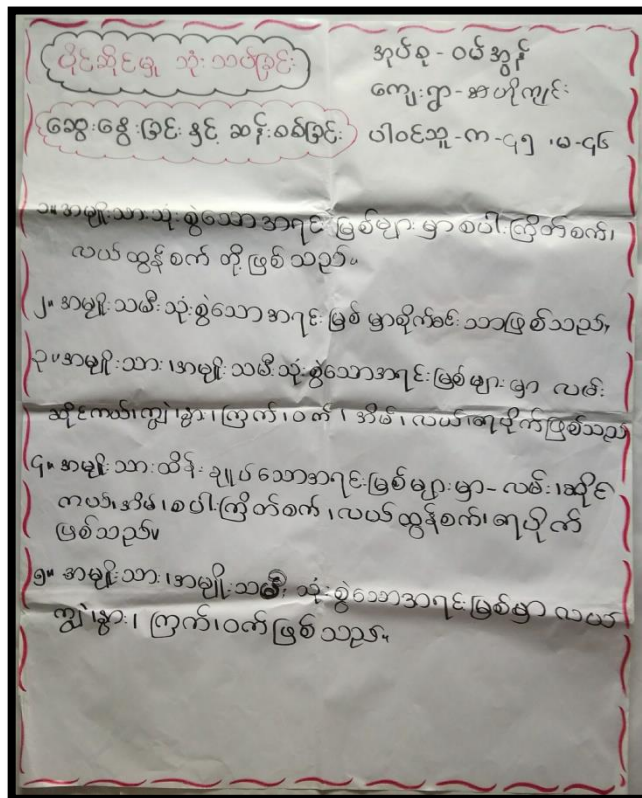 ပိုင်ဆိုင်မှု သုံးသပ်ခြင်း
ဆွေးနွေးခြင်း နှင့် ဆန်းစစ်ခြင်း
အုပ်စု - ဝမ်အွန်
ကျေးရွာ - ဆဟိုကျင်း
ပါဝင်သူ - က - ၄၅ ၊ မ - ၄၆
၁။ အမျိုးသားသုံးစွဲသောအရင်းမြစ်များမှာ စပါးကြိတ်စက်၊
လယ်ထွန်စက် တို့ဖြစ်သည်။
၂။ အမျိုးသမီးသုံးစွဲသောအရင်းမြစ်မှာစိုက်ခင်းသာဖြစ်သည်။
၃။ အမျိုးသား၊အမျိုးသမီးသုံးစွဲသောအရင်းမြစ်များမှာ လမ်း
ဆိုင်ကယ်၊ကျွဲ၊နွား၊ကြက်၊ဝက်၊အိမ်၊လယ်၊ရေပိုက်ဖြစ်သည်
၄။ အမျိုးသားထိန်းချုပ်သောအရင်းမြစ်များမှာ-လမ်း၊ဆိုင်
ကယ်၊အိမ်၊စပါးကြိတ်စက်၊လယ်ထွန်စက်၊ရေပိုက်
ဖြစ်သည်။
၅။ အမျိုးသား၊အမျိုးသမီး သုံးစွဲသောအရင်းမြစ်မှာ လယ်
ကျွဲ၊နွား၊ကြက်၊ဝက်ဖြစ်သည်။